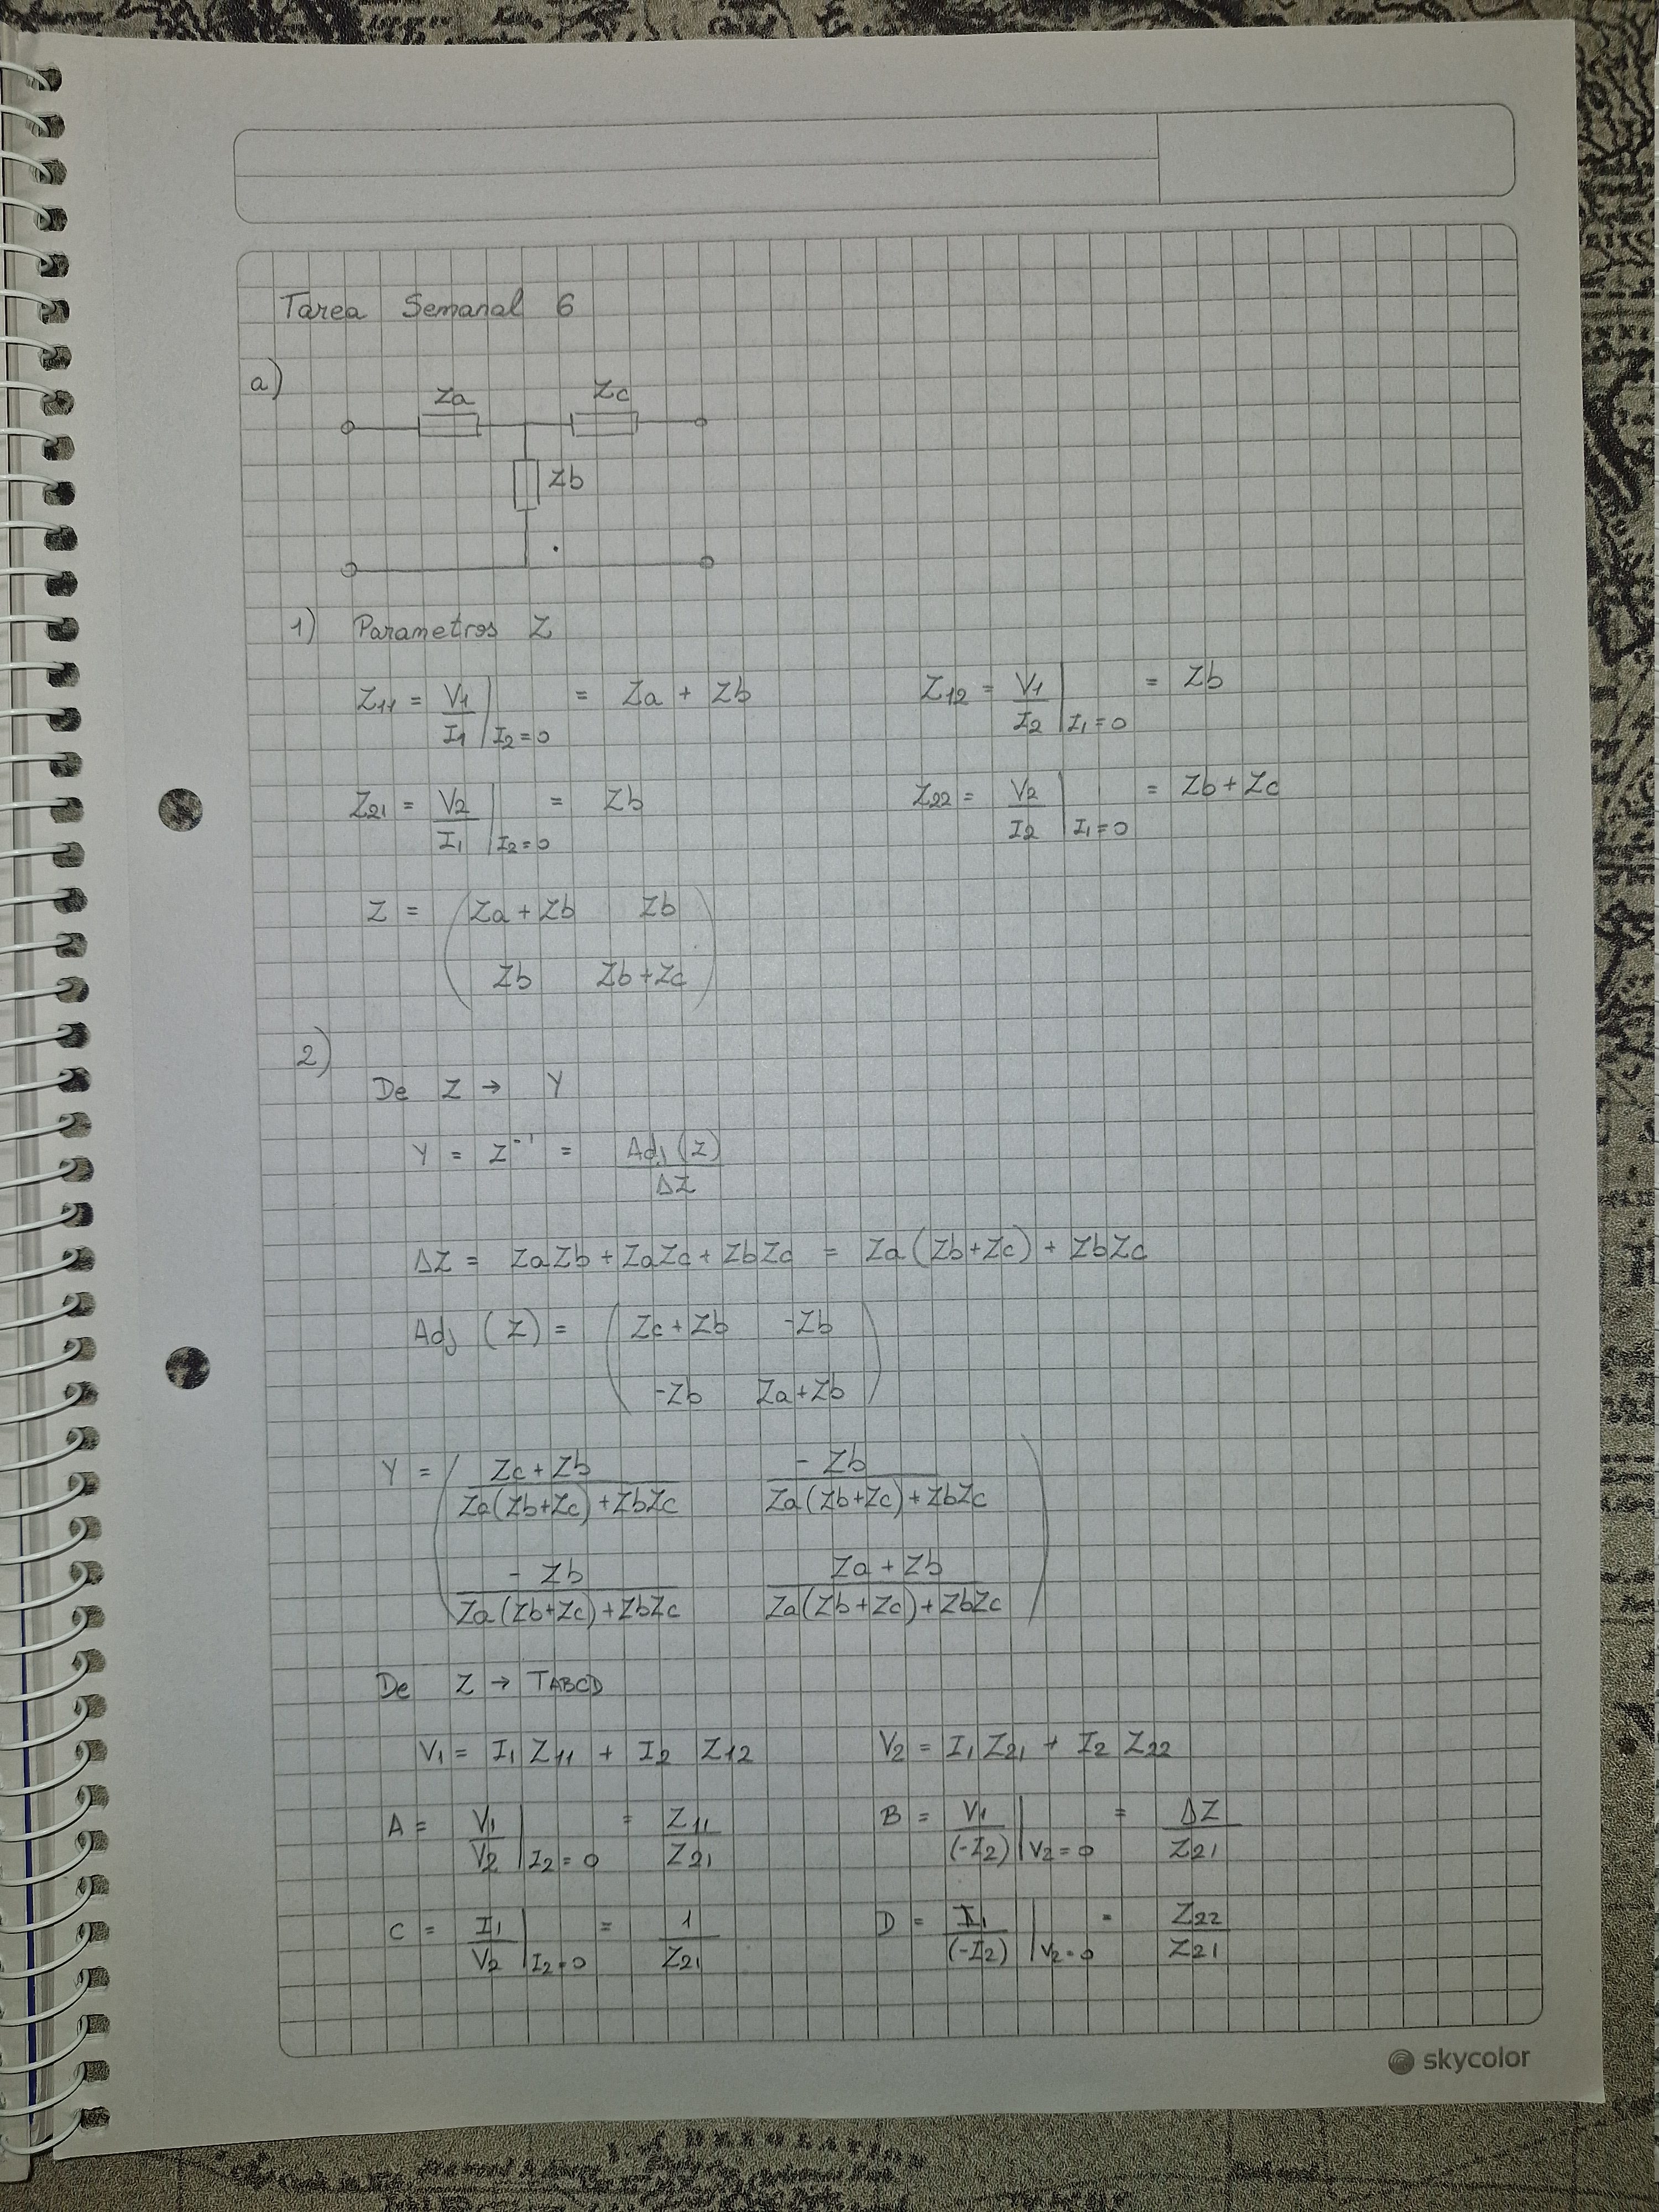 Tarea Semanal 6
a)
Za Zc
Zb
1) Parametros Z
Z11 = V1/I1 | I2=0 = Za + Zb Z12 = V1/I2 | I1=0 = Zb
Z21 = V2/I1 | I2=0 = Zb Z22 = V2/I2 | I1=0 = Zb+Zc
Z = ( Za+Zb Zb
Zb Zb+Zc )
2)
De Z → Y
Y = Z⁻¹ = Adj(Z)/ΔZ
ΔZ = ZaZb + ZaZc + ZbZc = Za(Zb+Zc) + ZbZc
Adj (Z) = ( Zc+Zb -Zb
-Zb Za+Zb )
Y = ( (Zc+Zb)/(Za(Zb+Zc)+ZbZc) -Zb/(Za(Zb+Zc)+ZbZc)
-Zb/(Za(Zb+Zc)+ZbZc) (Za+Zb)/(Za(Zb+Zc)+ZbZc) )
De Z → TABCD
V1 = I1 Z11 + I2 Z12 V2 = I1 Z21 + I2 Z22
A = V1/V2 | I2=0 = Z11/Z21 B = V1/(-I2) | V2=0 = ΔZ/Z21
C = I1/V2 | I2=0 = 1/Z21 D = I1/(-I2) | V2=0 = Z22/Z21
skycolor